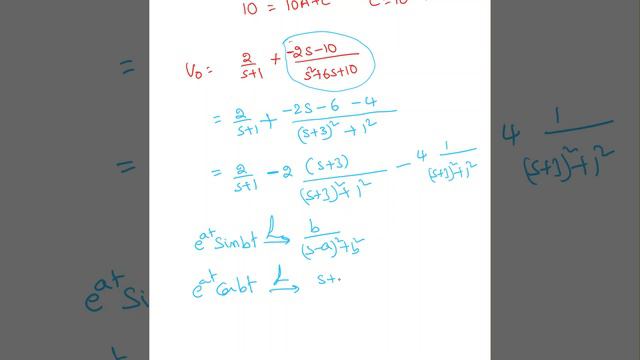 10 = 10A+C C=10
V₀ = 2/(s+1) + (-2s-10)/(s²+6s+10)
= 2/(s+1) + (-2s-6-4)/((s+3)²+1²)
= 2/(s+1) - 2 (s+3)/((s+3)²+1²) - 4 1/((s+3)²+1²)
e^at sinbt L→ b/((s-a)²+b²)
e^at Cosbt L→ s+